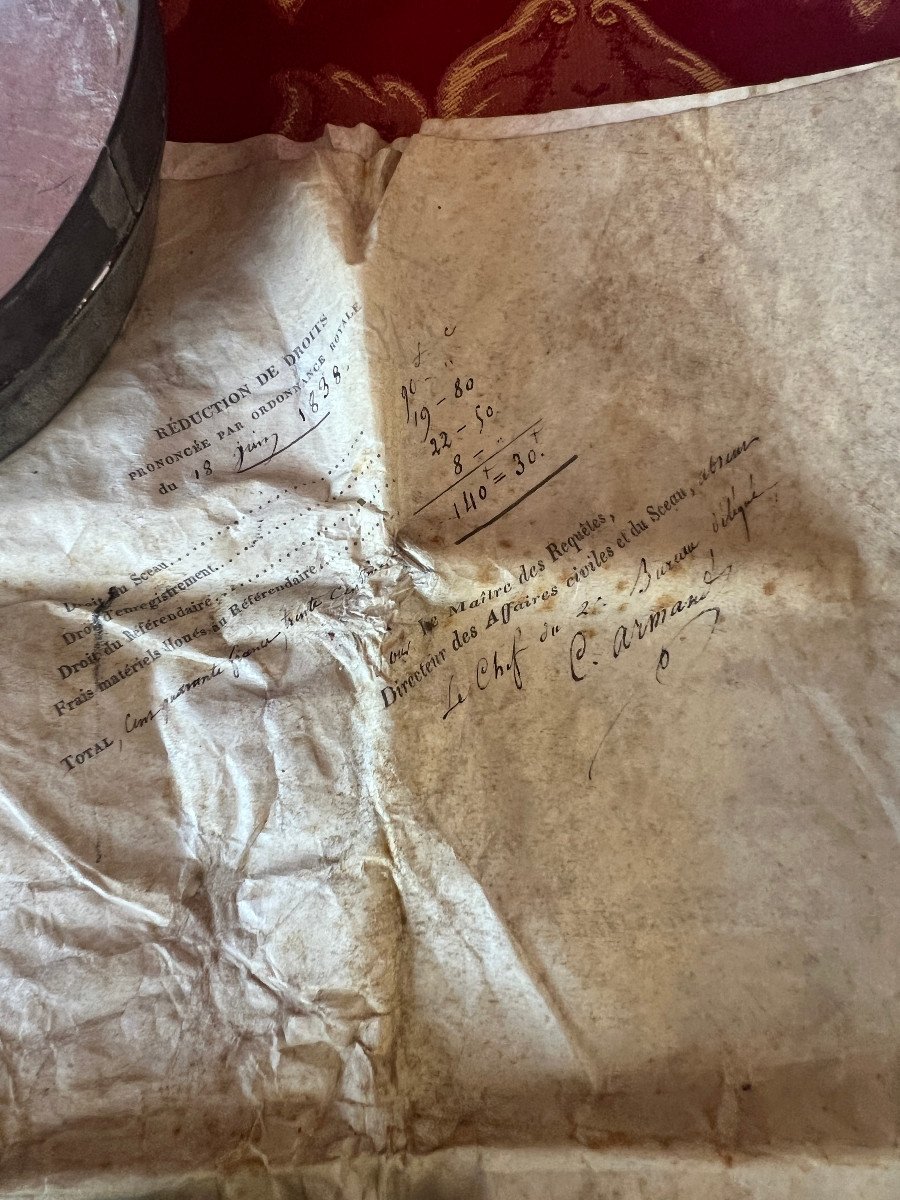 RÉDUCTION DE DROITS
PRONONCÉE PAR ORDONNANCE ROYALE
du 18 juin 1838.
f c
Droit du Sceau........ 90 - "
Droit d'enregistrement........ 19 - 80
Droit du Référendaire........ 22 - 50
Frais matériels alloués au Référendaire.... 8 - "
140 = 30.
TOTAL, Cent quarante francs trente Centimes
Pour Le Maître des Requêtes,
Directeur des Affaires civiles et du Sceau, absent
Le Chef du 2e Bureau délégué
C. Armand